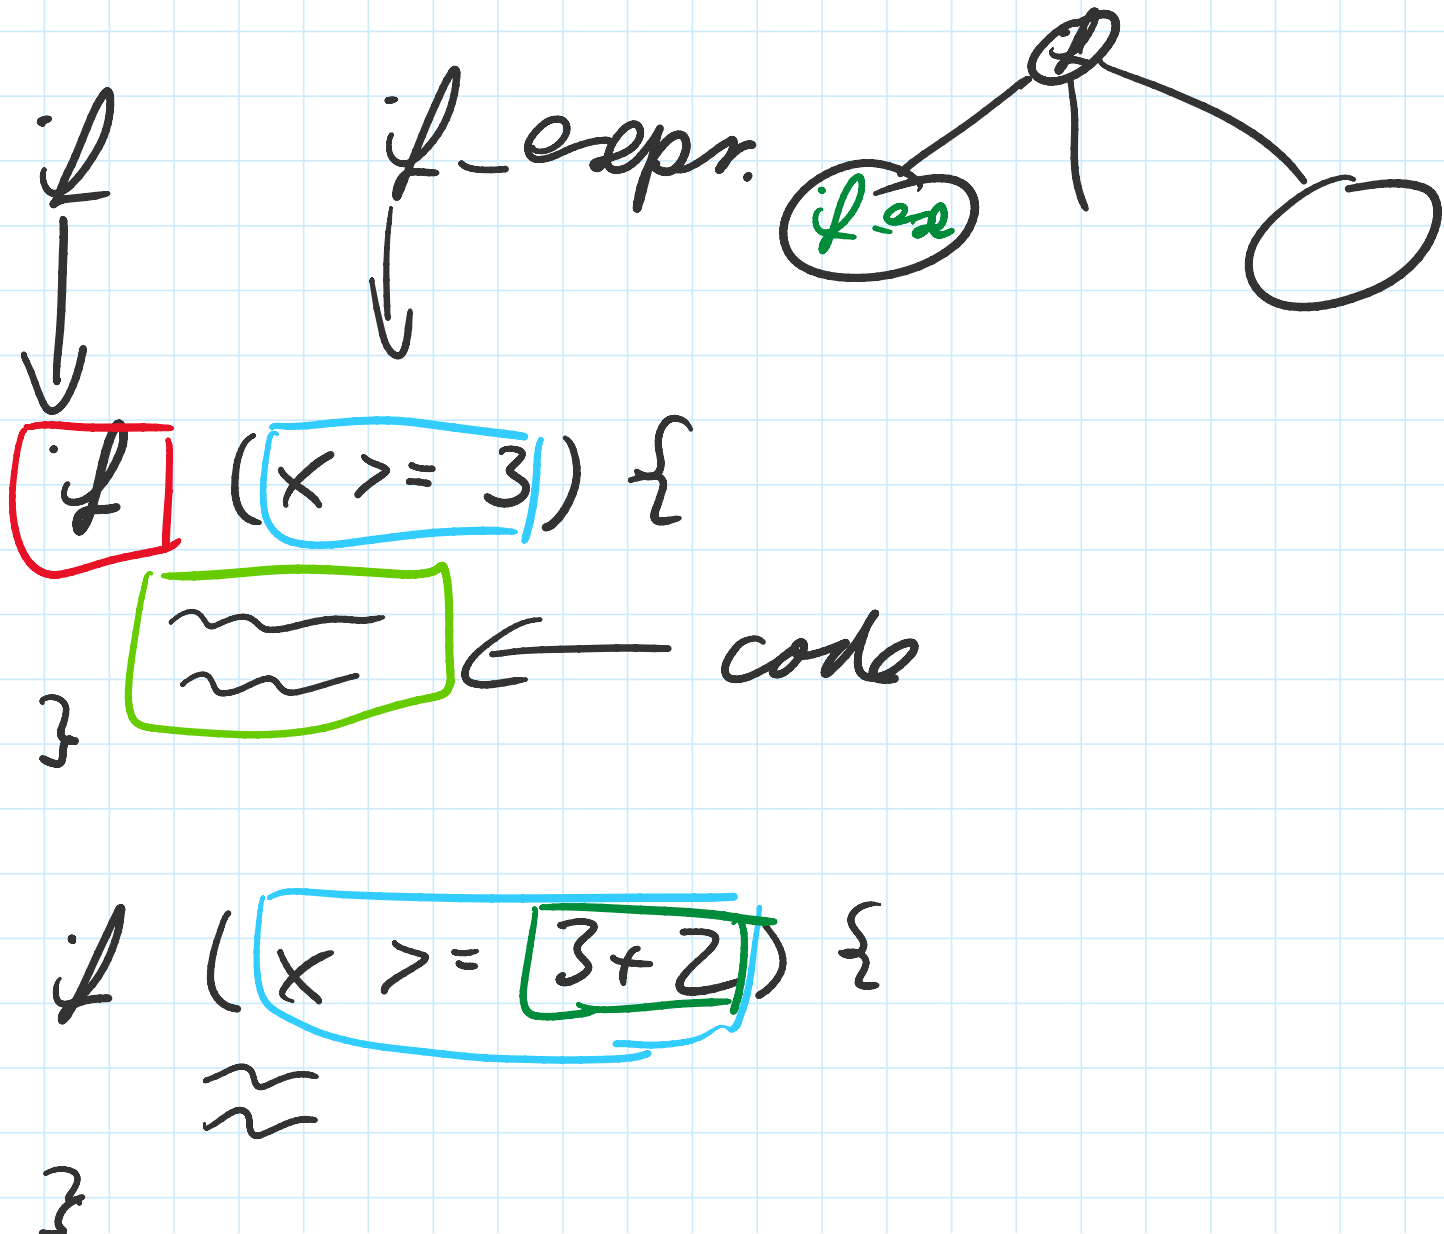 if
if if_expr.
if_ex
if (x >= 3) {
code
}
if (x >= 3+2) {
}